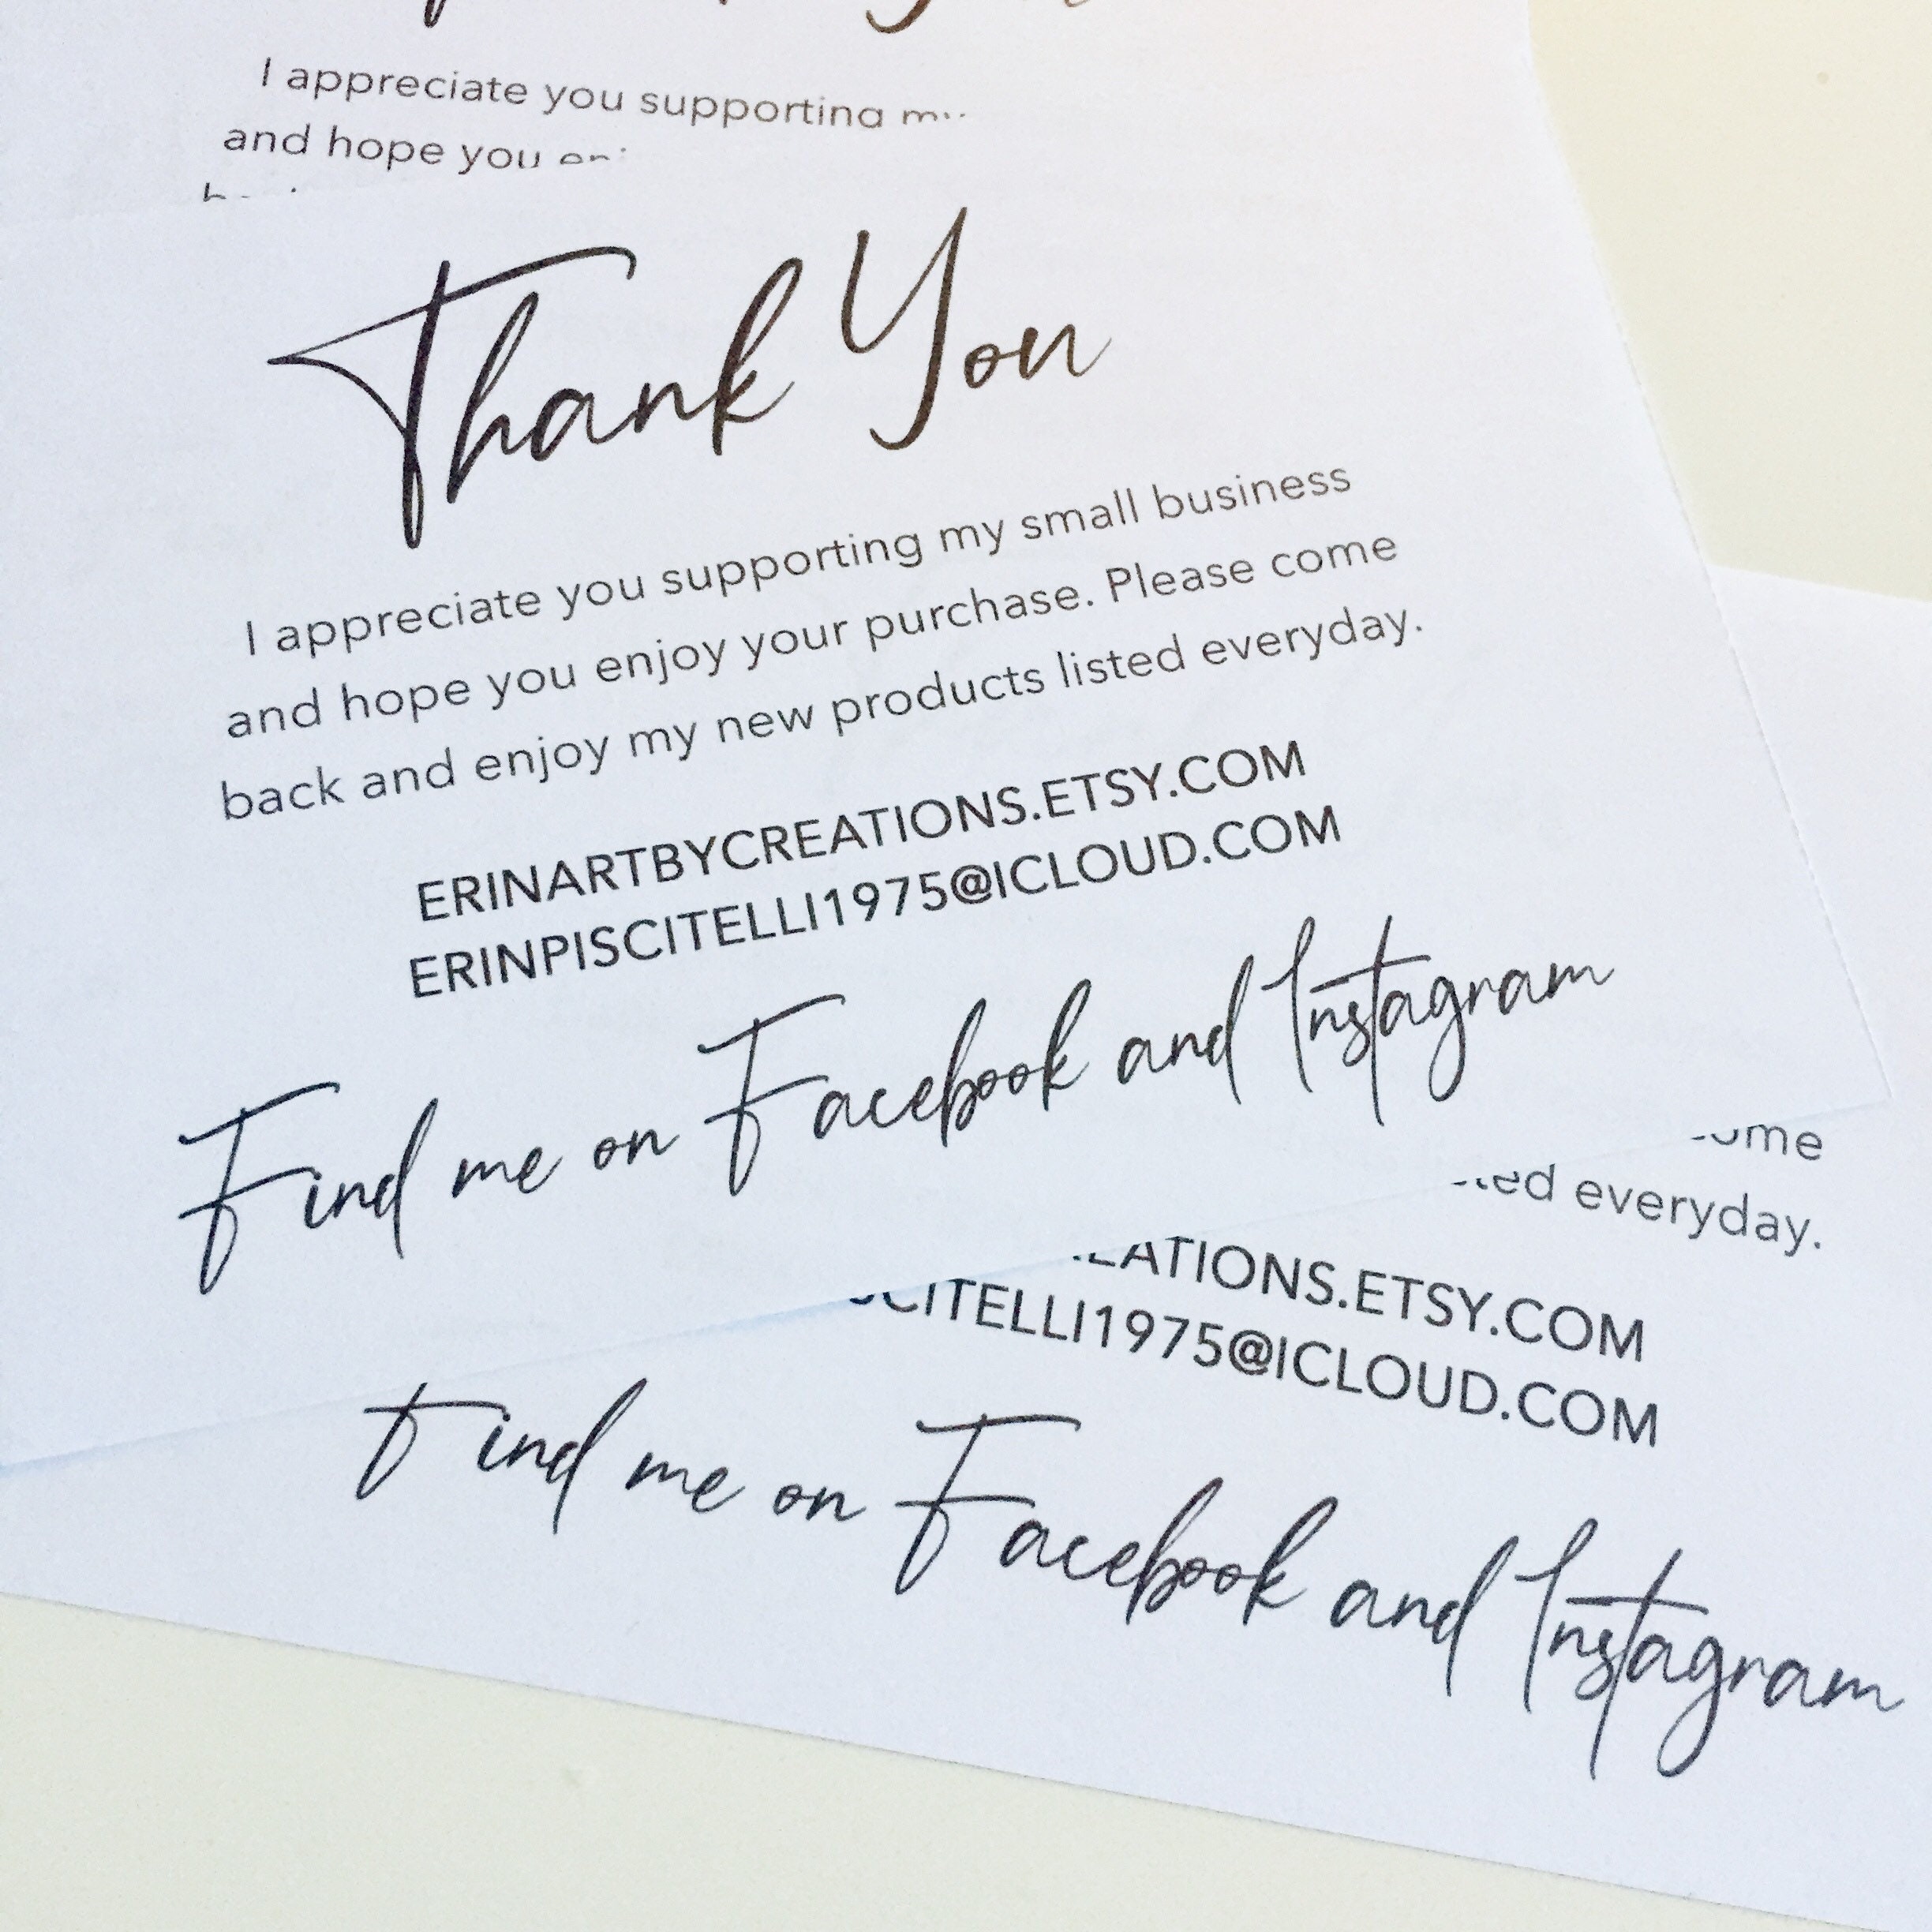 I appreciate you supporting
and hope you
Thank You
I appreciate you supporting my small business
and hope you enjoy your purchase. Please come
back and enjoy my new products listed everyday.
ERINARTBYCREATIONS.ETSY.COM
ERINPISCITELLI1975@ICLOUD.COM
Find me on Facebook and Instagram
everyday.
ATIONS.ETSY.COM
CITELLI1975@ICLOUD.COM
Find me on Facebook and Instagram